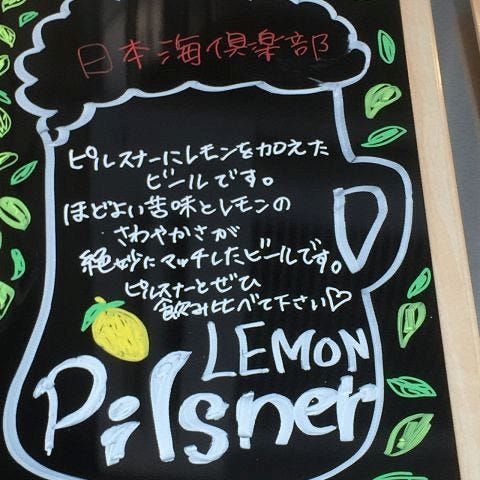 日本海倶楽部
ピルスナーにレモンを加えた
ビールです。
ほどよい苦味とレモンの
さわやかさが
絶妙にマッチしたビールです。
ピルスナーとぜひ
飲み比べて下さい♡
LEMON
Pilsner